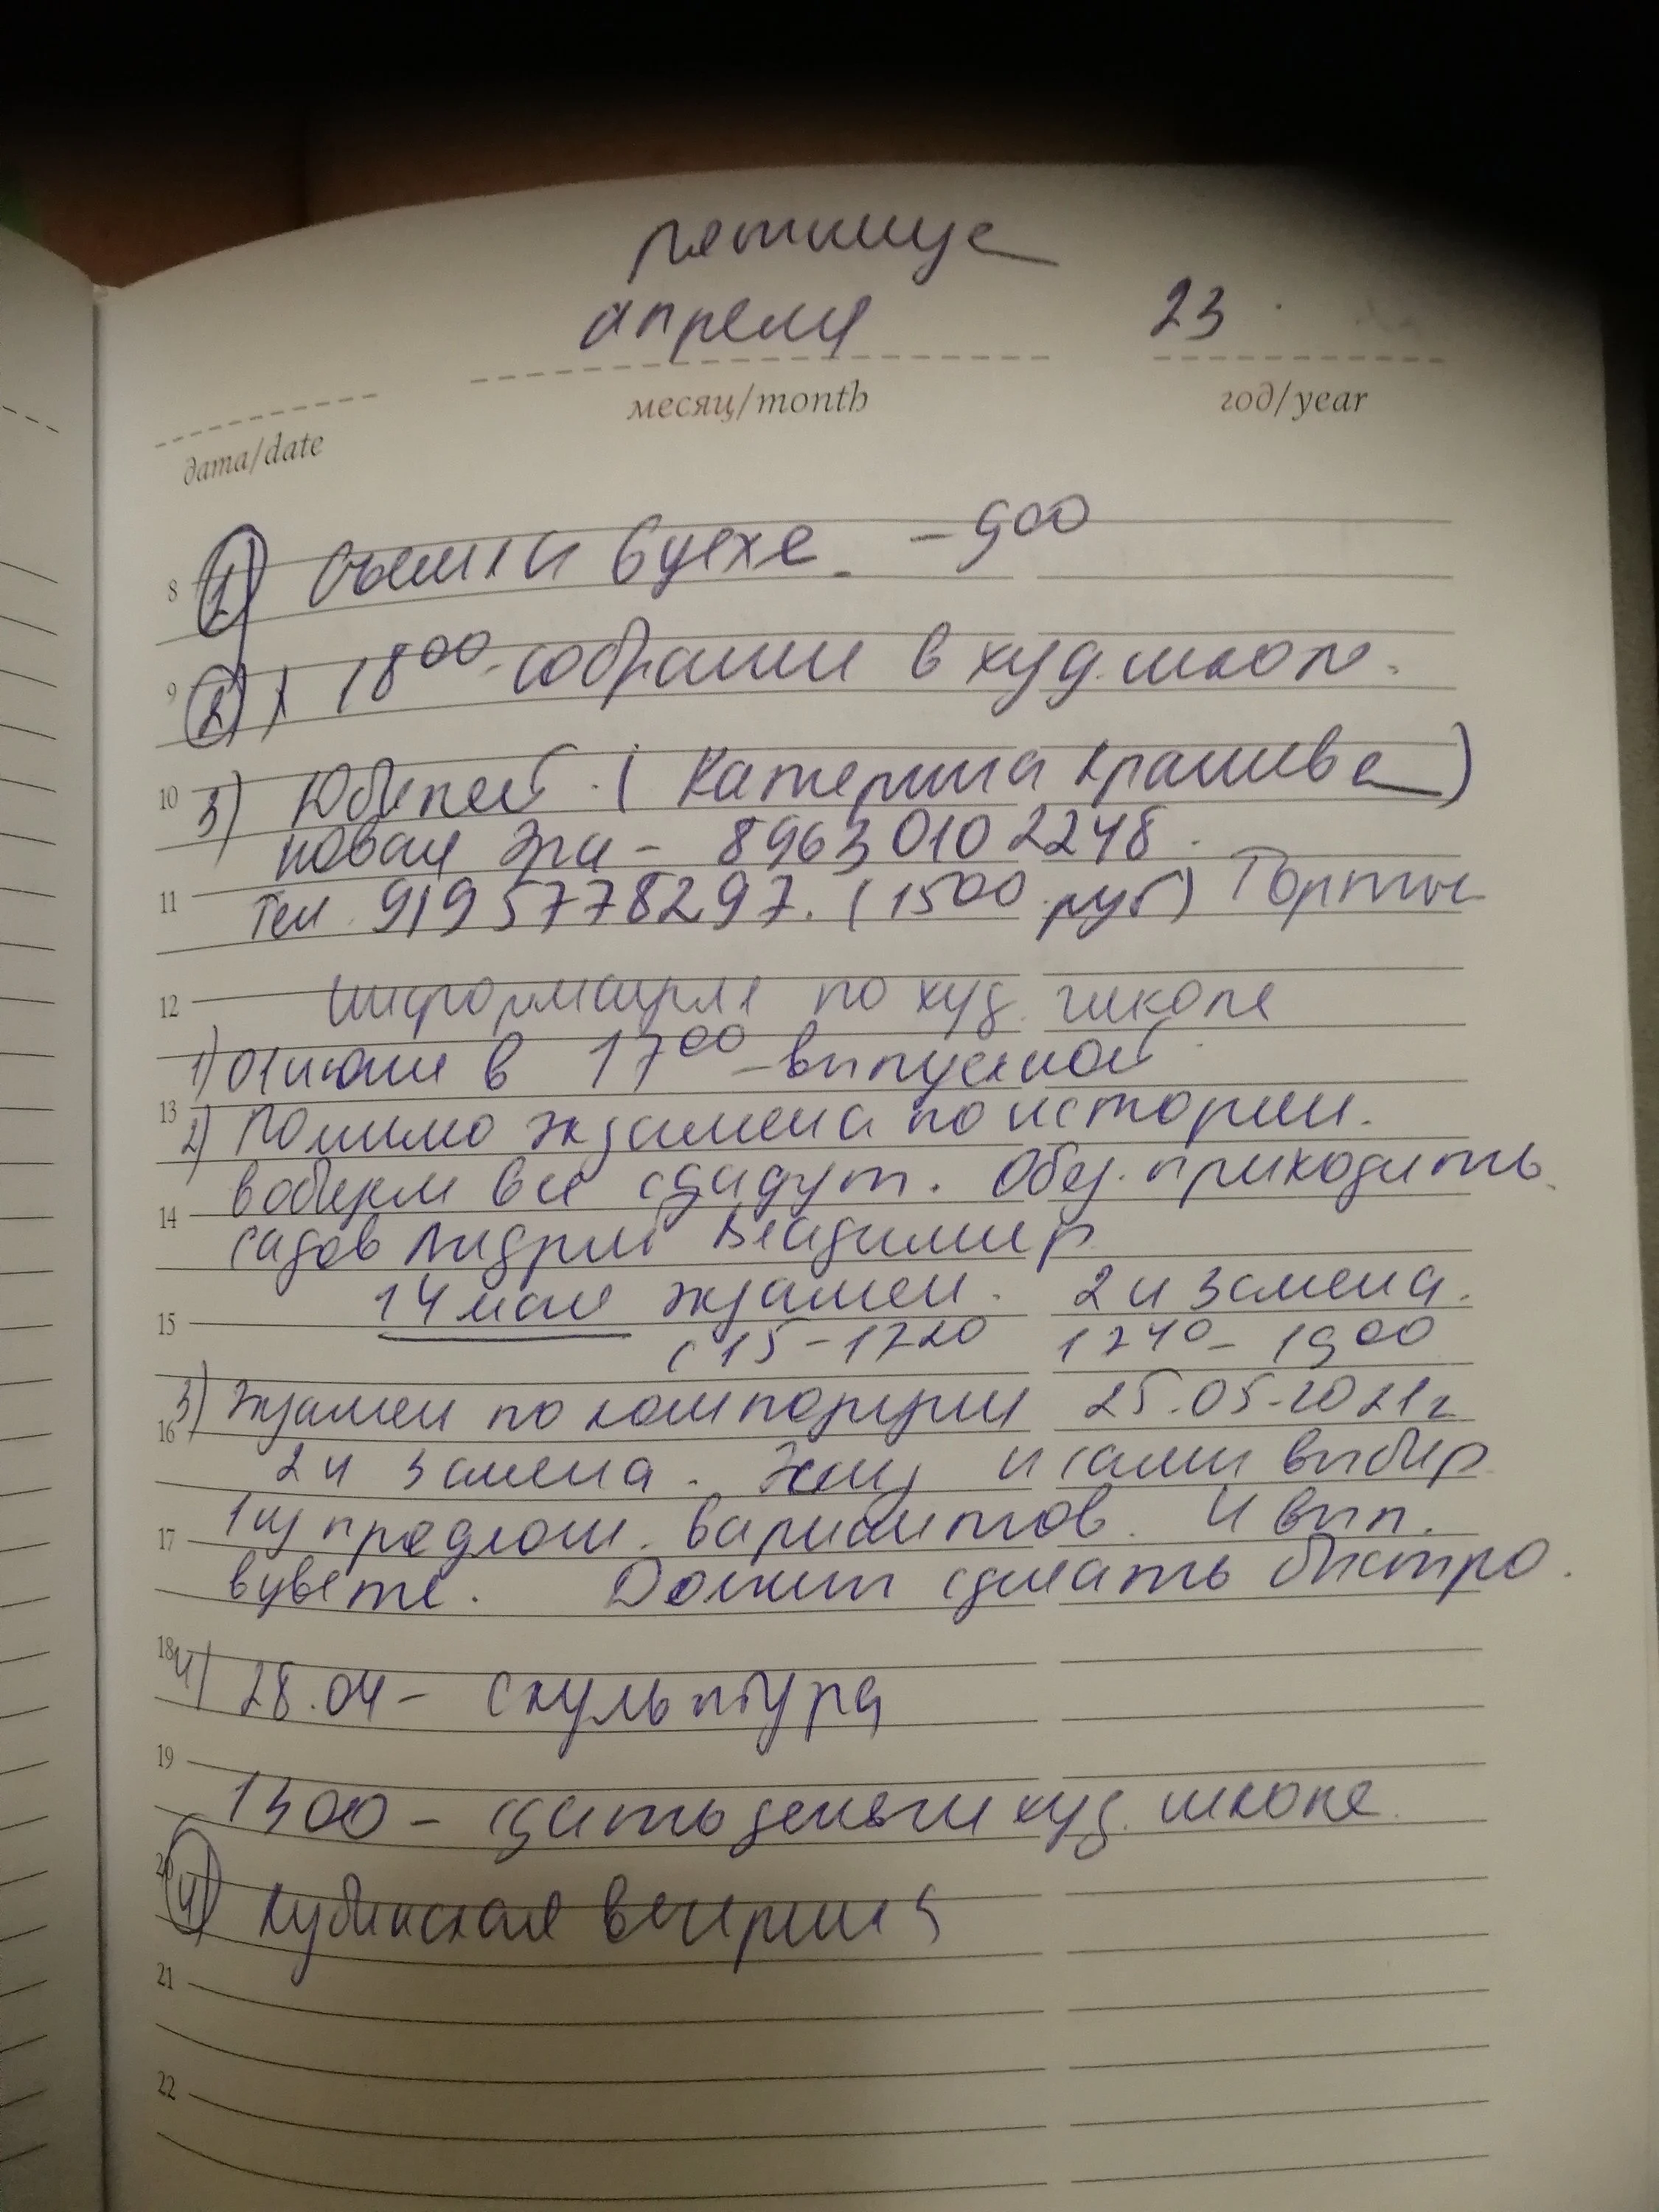 пятница
апреля 23
месяц/month год/year
дата/date
1) Съемки в цехе. - 9 00
8
2) 18 00 - собрании в худ. школе.
9
10 3) Юбилей. (Катерина Крашиева)
новая Эра - 89630102248.
11 тел. 9195778297. (1500 руб) Торты
12 информация по худ. школе
1) 01 июня в 17 00 - выпускной
13 2) Помимо экзамена по истории.
в общем все сдадут. Обяз. приходить
14 Садов Андрей Владимир
14 мая экзамен. 2 и 3 смена.
15 с 15 - 17 20 17 40 - 19 00
3) Экзамен по композиции 25.05.2021 г
16 2 и 3 смена. и сами выбир
1 из предлож. вариантов. И вып.
17 в цвете. Должны сделать быстро.
18 4) 28.04 - скульптура
19
1300 - сдать деньги худ. школе.
20 4) Кубинская вечеринка
21
22